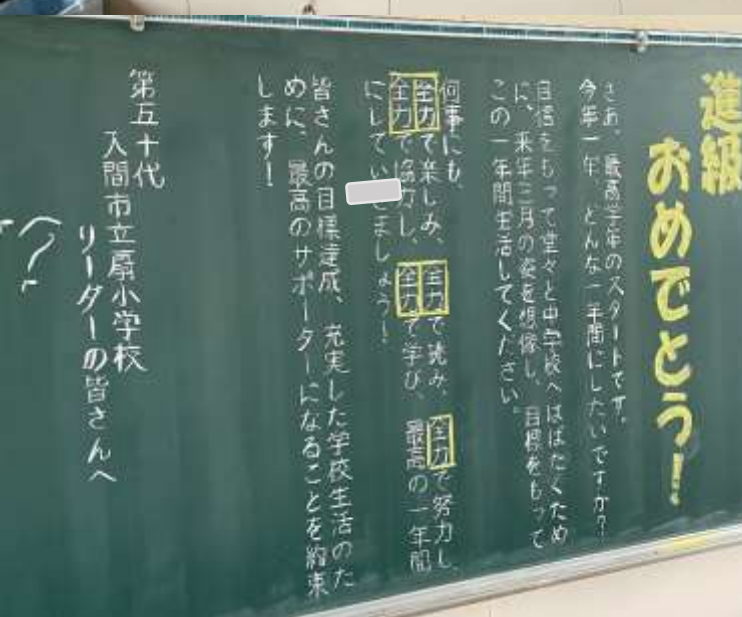 進級
おめでとう!
さあ、最高学年のスタートです。
今年一年、どんな一年間にしたいですか?
目標をもって堂々と中学校へはばたくため
に、来年三月の姿を想像し、目標をもって
この一年間生活してください。
何事にも、
全力で楽しみ、全力で読み、全力で努力し、
全力で協力し、全力で学び、最高の一年間
にしていきましょう!
皆さんの目標達成、充実した学校生活のた
めに、最高のサポーターになることを約束
します!
第五十代
入間市立扇小学校
リーダーの皆さんへ